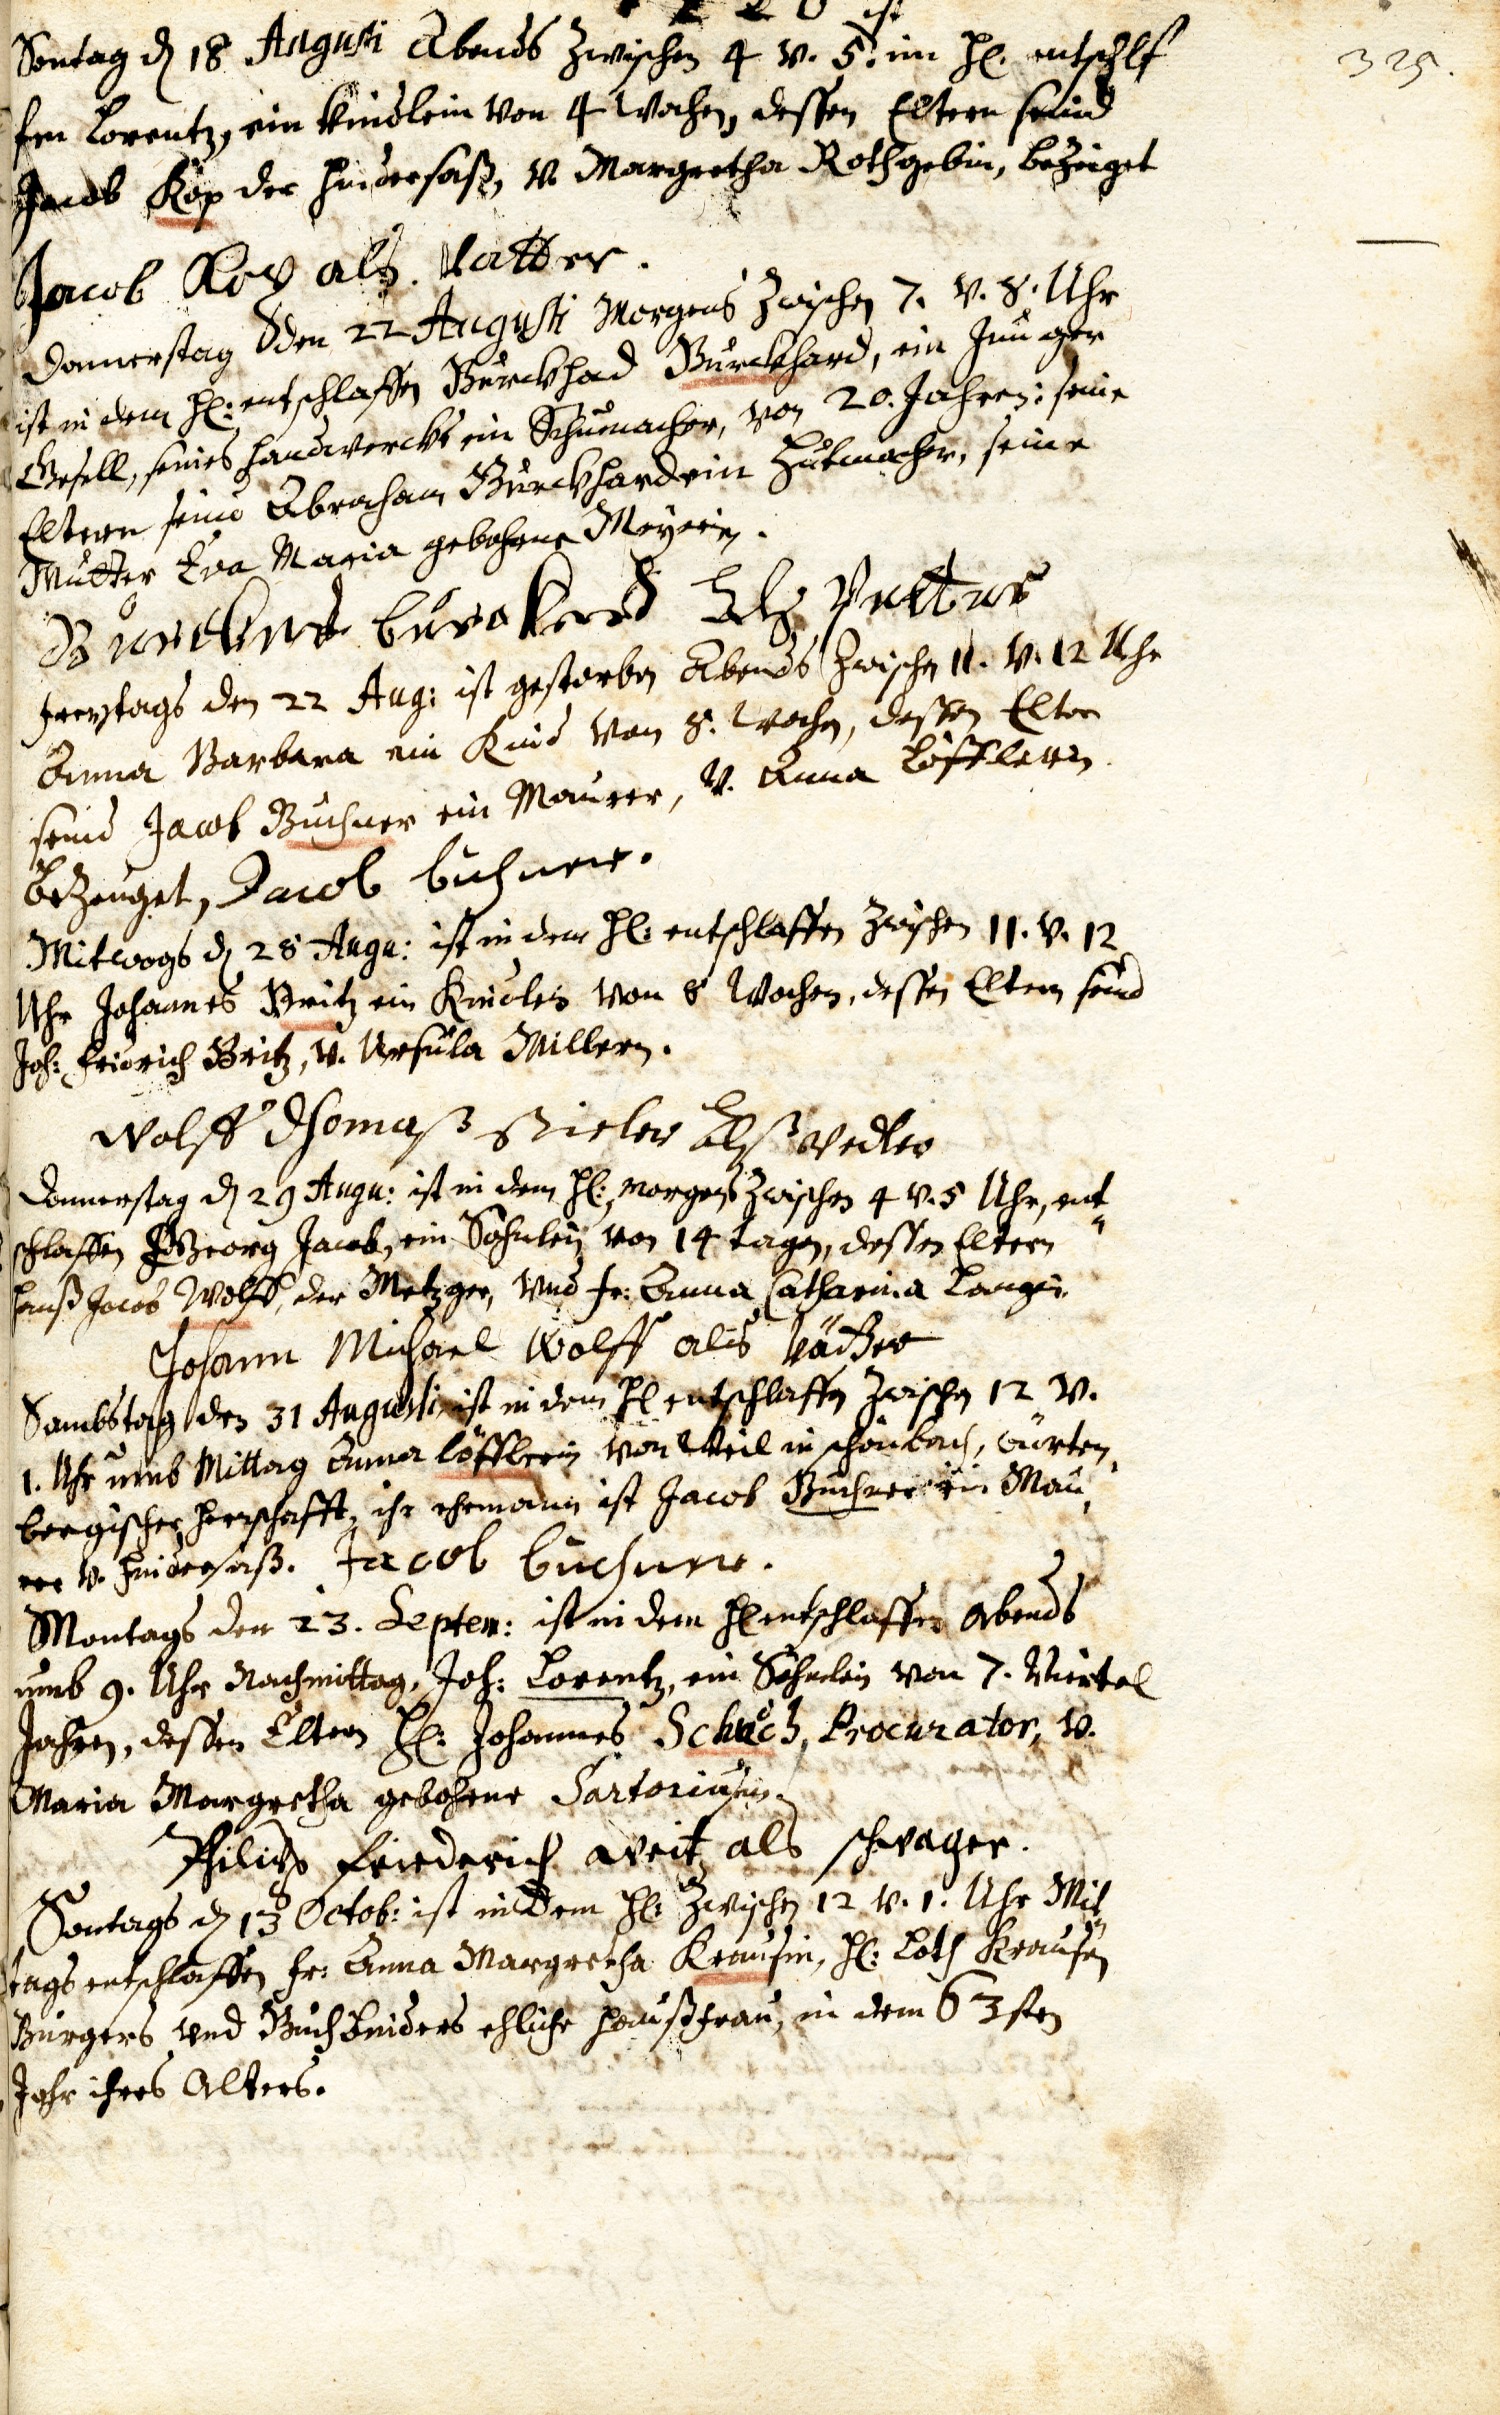 325.
ist
Sontag d. 18 Augusti Abends zwischen 4 v. 5. im H. entschlf
fen Lorentz, ein Kindlein von 4 Wochen, dessen Eltern seind
Jacob Kop der Hindersaß, v. Margretha Rothgebin, bezeuget
Jacob Kop als Vatter.
Donnerstag den 22 Augusti Morgens zwischen 7. v. 8. Uhr
ist in dem H: entschlaffen Burckhad Burckhard, ein Junger
Gesell, seines Handwercks ein Schumacher, von 20. Jahren; seine
Eltern seind Abraham Burckhard ein Hutmacher, seine
Mutter Eva Maria gebohrne Meyerin.
als Vetter
Freytags den 22 Aug: ist gestorben Abends zwischen 11. v. 12 Uhr
Anna Barbara ein Kind von 8. Wochen, dessen Elter
seind Jacob Buchner ein Maurer, v. Anna Löfflerin
bezeuget, Jacob buchner.
Mitwogs d. 28 Augu: ist in dem H: entschlaffen zwischen 11. v. 12
Uhr Johannes Britz ein Kindlein von 8 Wochen, dessen Eltern seind
Joh: Fridrich Britz, v. Ursula Millern.
Wolff Thomaß Alß
Donnerstag d. 29 Augu: ist in dem H: morgens zwischen 4 v. 5 Uhr, ent"
schlaffen Georg Jacob, ein Söhnlein von 14 Tagen, dessen Eltern
Hanß Jacob Wolff, der Metzger, vnd Fr: Anna Catharina Langin
Johann Michael Wolff als Vätter
Sambstag den 31 Augusti, ist in dem H entschlaffen zwischen 12 v.
1. Uhr umb Mittag Anna Löfflerin von Weil in Schönbuch, Würten,
bergischer Herrschafft, ihr ehemann ist Jacob Buchner ein Mau,
rer v. Hindersaß. Jacob buchner.
Montags den 23. Septem: ist in dem H entschlaffen Abends
umb 9. Uhr Nachmittag, Joh: Lorentz, ein Söhnlein von 7. Viertel
Jahren, dessen Eltern H: Johannes Schuch, Procurator, v.
Maria Margretha gebohrne Sartoriusin.
Philips Friederich Weitz als schwager.
Sontags d. 13 Octob: ist in dem H: zwischen 12 v. 1. Uhr Mit"
tags entschlaffen Fr: Anna Margretha Krausin, H: Loth Krausen
Burgers vnd Buchbinders ehliche Haußfrau, in dem 63sten
Jahr ihres Alters.